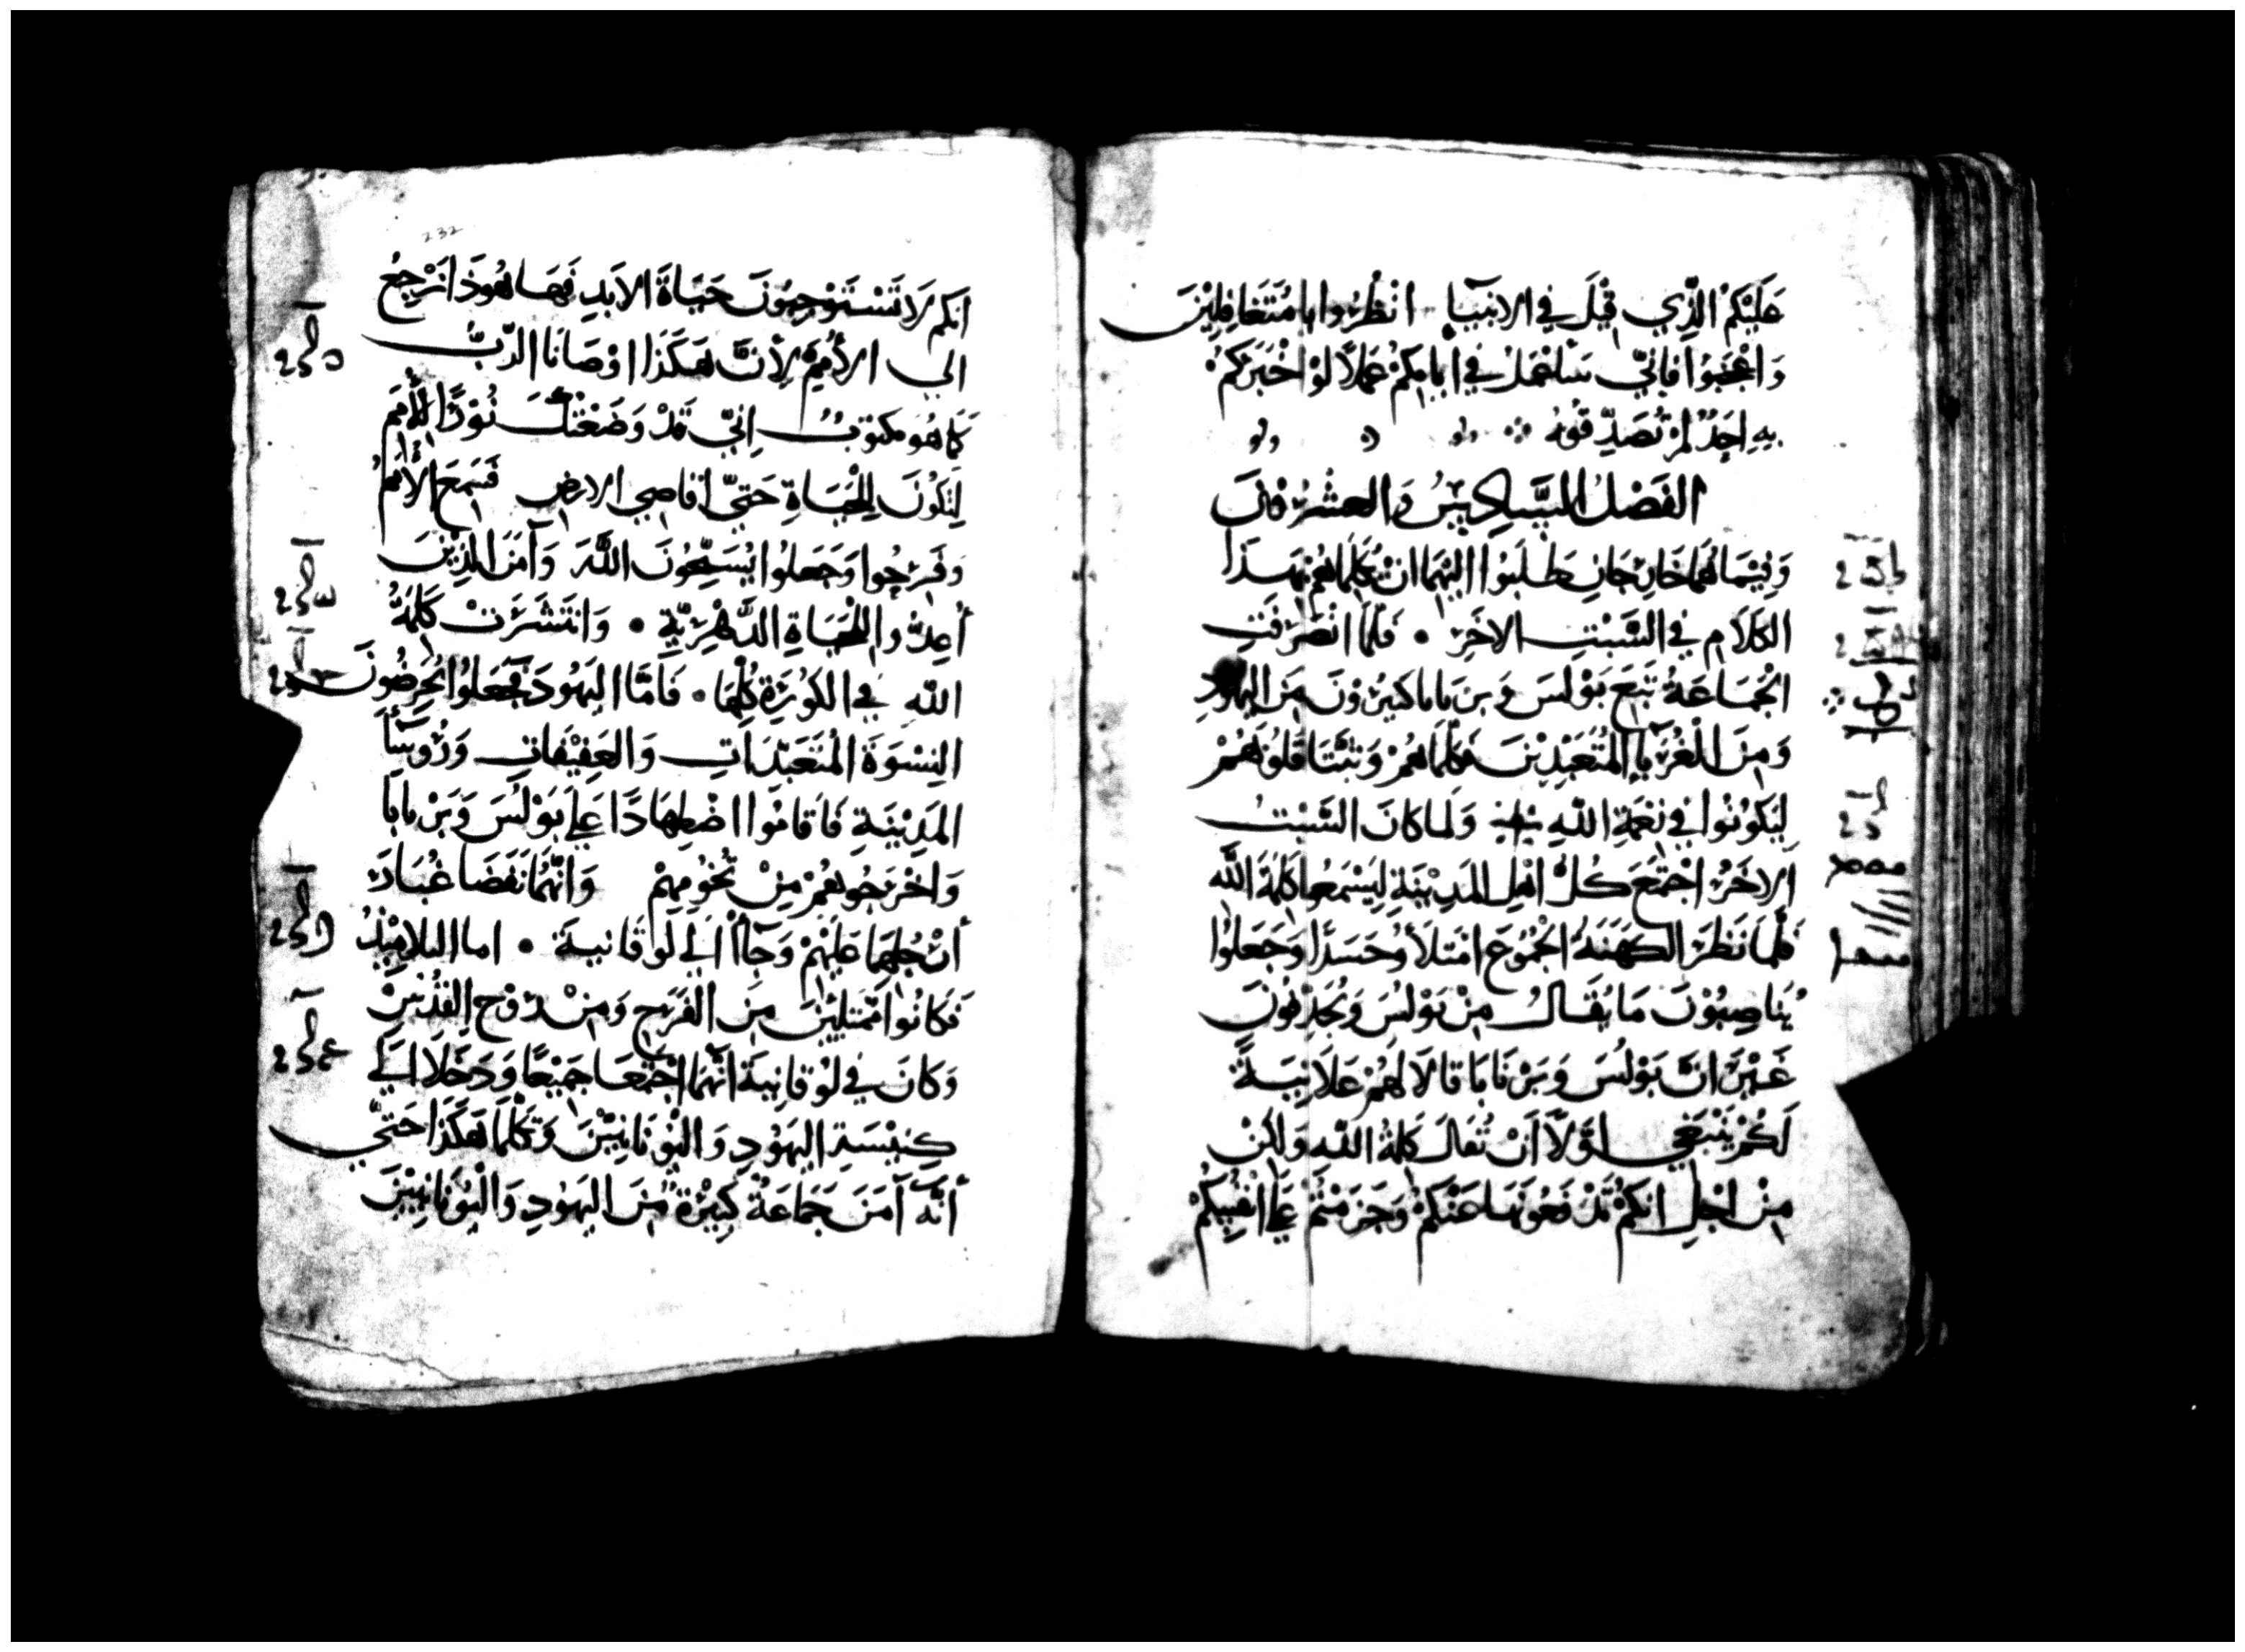 عَلَيْكُمْ الَّذِي قِيْلَ فِي الانبيَا انْظُرُوا يا مُتَغَافِلِيْنَ
وَاعْجَبُوا فَانِّي سَاعْمَلُ فِي ايَّامِكُمْ عَمَلاً لَوْ اخْبَرَكُمْ
بِهِ احَدٌ لَمْ تُصَدِّقُوهُ
الفَصْلُ السَّادِسُ وَالعشْرُوْنَ
وَفِيْمَا هُمَا خَارِجَانِ طَلَبُوا اليْهِمَا انْ يُكَلِّمَاهُمْ بِهَذَا
الكَلَام فِي السَّبْتِ الاخَرِ • فَلَمَّا انْصَرَفَتِ
الجْمَاعَةُ تَبِعَ بَوْلُسَ وَبرنَابا كثيْرُوْنَ مِنَ اليَهُودِ
وَمِنَ الْغُرَبَاءِ المُتَعَبِّدِيْنَ فَكَلَّمَاهُمْ وَثَبَّتَا قُلُوْبَهُمْ
لِيَكُوْنُوا فِي نِعْمَةِ اللهِ وَلما كَانَ السَّبْتُ
الاخَرُ اجْتَمَعَ كُلُّ اهْلِ المَدِيْنَةِ لِيَسْمَعُوا كَلِمَةَ اللهِ
فَلَمَّا نَظَرَ الكَهَنَةُ الجْمُوْعَ امْتَلَأُو حَسَدًا وَجَعَلُوْا
يُنَاصِبُوْنَ مَا يُقَالُ مِنْ بَوْلُسَ وَيُجَدِّفُونَ
غَيْرَ انَّ بَوْلُسَ وَبَرْنَابَا قَالَا لَهُمْ عَلَانِيَةً
لَكُمْ يَنْبَغِي اوَّلاً أَنْ تُقَالَ كَلِمَةُ اللهِ وَلكِنْ
مِنْ اجْلِ انكُمْ تَدْفَعُوْنَهَا عَنْكُمْ وَجَزَمْتُمْ عَلَى انْفُسِكُمْ
232
انكم لَا تَسْتَوْجِبُونَ حَيَاةَ الابَدِ فَهَا هُوَذَا نَرْجِعُ
الي الأُمَمِ لِأَنَّ هَكَذَا اوْصَانَا الرَّبُّ
كَمَا هُوَ مكتوْبٌ انِّي قَدْ وَضَعْتُكَ نُوْرًا لِلْأُمَمِ
لِتَكُوْنَ لِلْحَيَاةِ حَتَّي اقَاصِي الارض فَسَمِعَ الأُمَمُ
وَفَرِحُوا وَجَعَلُوا يُسَبِّحُونَ اللهَ وَآمَنَ الذِيْنَ
أُعِدُّوا لِلْحَيَاةِ الدَّهْرِيَّةِ • وَانتَشَرَتْ كَلِمَةُ
اللهِ فِي الكُوْرَةِ كُلِّهَا • فَأَمَّا اليَهُودَ فَجَعَلُوا يُحَرِّضُونَ
النِسْوَةَ المُتَعَبِّدَاتِ وَالعَفِيْفَاتِ وَرُوسَآَ
المَدِيْنَةِ فَاقَامُوا اضْطِهَادًا عَلَى بَوْلُسَ وَبَرْنابَا
وَاخْرَجُوهُمْ مِنْ تُخُوْمِهِمْ وَانَّهُمَا نَفَضَا غُبَارَ
أَرْجُلِهِمَا عَلَيْهِمْ وَجَاآ الَي لُوقَانيةَ • اما التلامِيْذُ
فَكَانُوا مُمْتَلِئِيْنَ مِن الفَرَحِ وَمِنْ رُوْحِ القُدُسِ
وَكَانَ فِي لُوْقَانِيةَ أَنَّهُمَا اجْتَمَعَا جَمِيْعًا وَدَخَلَا الَي
كِنِيْسَةِ اليَهُوْدِ وَاليُوْنَانِيِّيْنَ وَتَكَلَّمَا هَكَذَا حَتَّي
أنَّه آمَنَ جَمَاعَةٌ كَبِيْرَةٌ مِنَ اليَهُودِ وَاليُوْنَانِيِّيْنَ